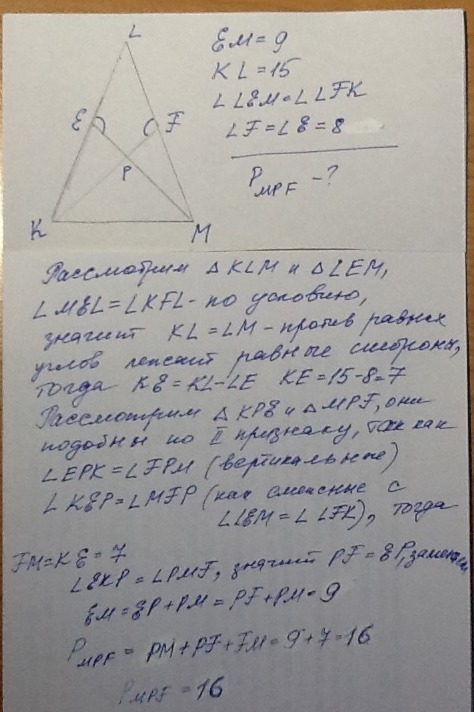 L
E
F
P
K
M
EM = 9
KL = 15
∠LEM = ∠LFK
LF = LE = 8
P MPF - ?
Рассмотрим △KLM и △LEM,
∠MEL = ∠KFL - по условию,
значит KL = LM - против равных
углов лежат равные стороны,
тогда KE = KL - LE KE = 15 - 8 = 7
Рассмотрим △KPE и △MPF, они
подобны по II признаку, так как
∠EPK = ∠FPM (вертикальные)
∠KEP = ∠MFP (как смежные с
∠LEM = ∠LFK), тогда
FM = KE = 7
∠EKP = ∠PMF, значит PF = EP, заметим
EM = EP + PM = PF + PM = 9
P MPF = PM + PF + FM = 9 + 7 = 16
P MPF = 16